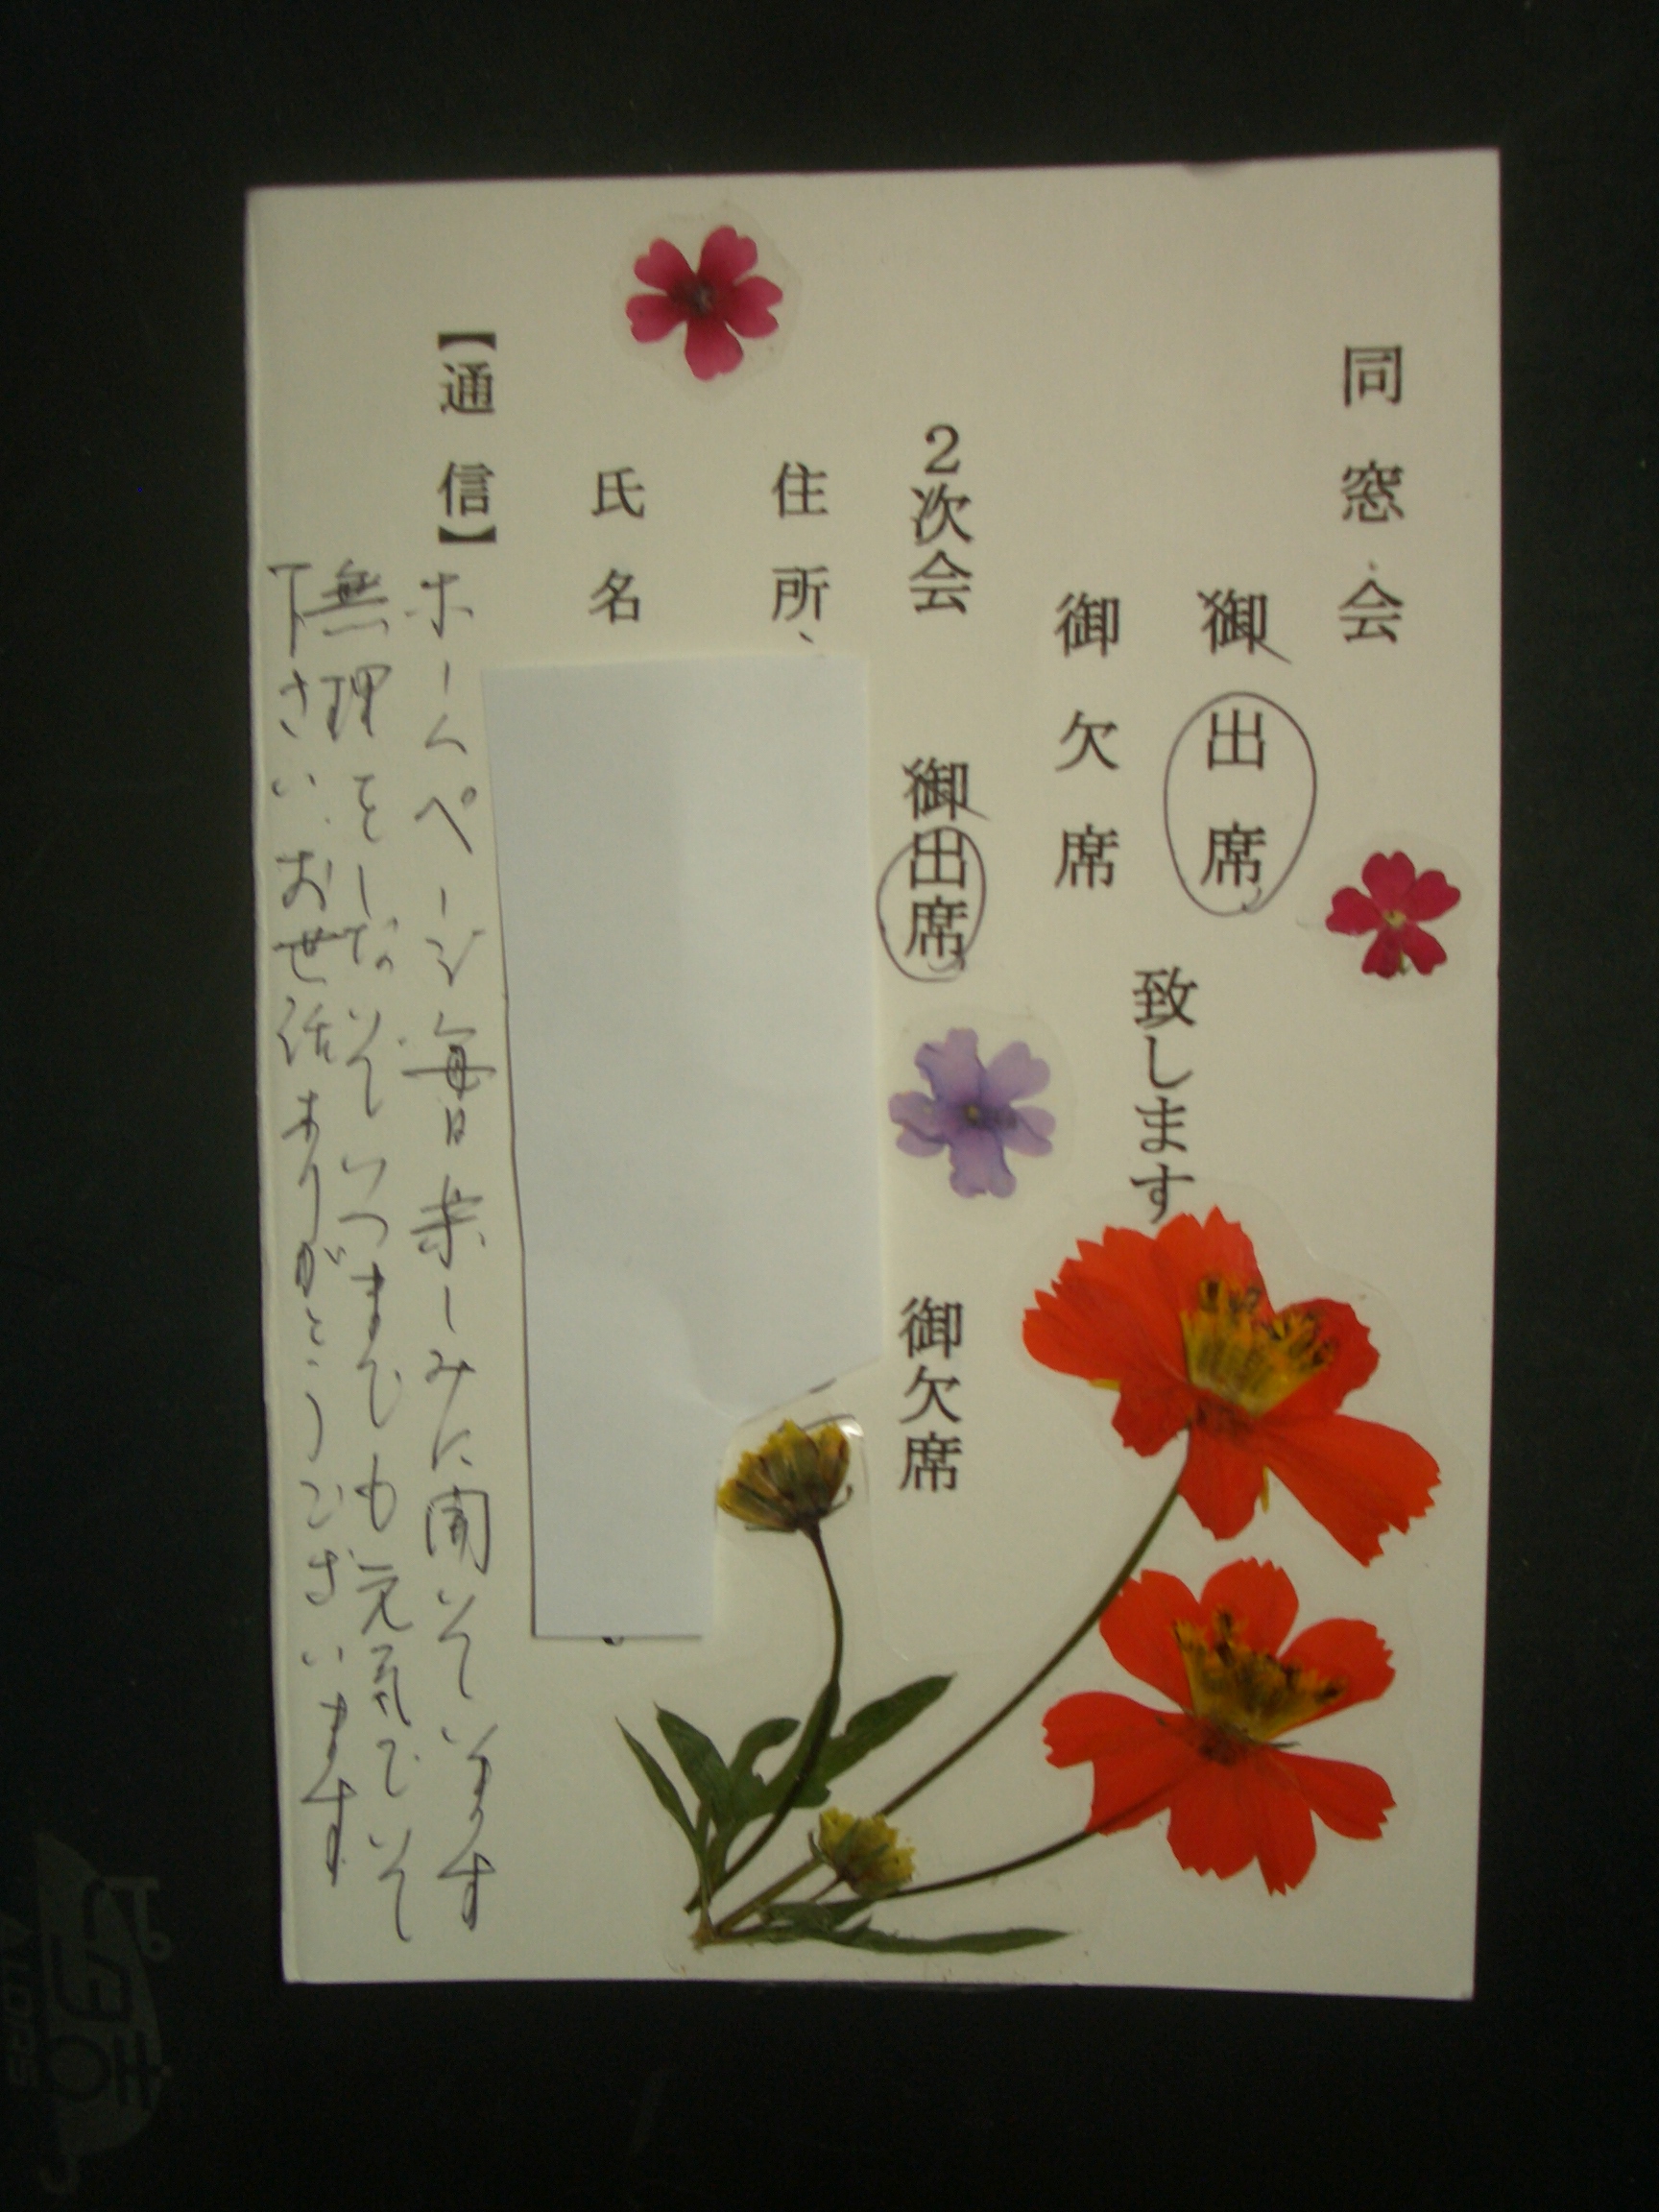 同窓会
御出席
御欠席
致します
2次会
御出席
御欠席
住所
氏名
【通信】
ホームページ毎日楽しみに開いています
無理をしないでいつまでも元気でいて
下さい.お世話ありがとうございます
ピタま